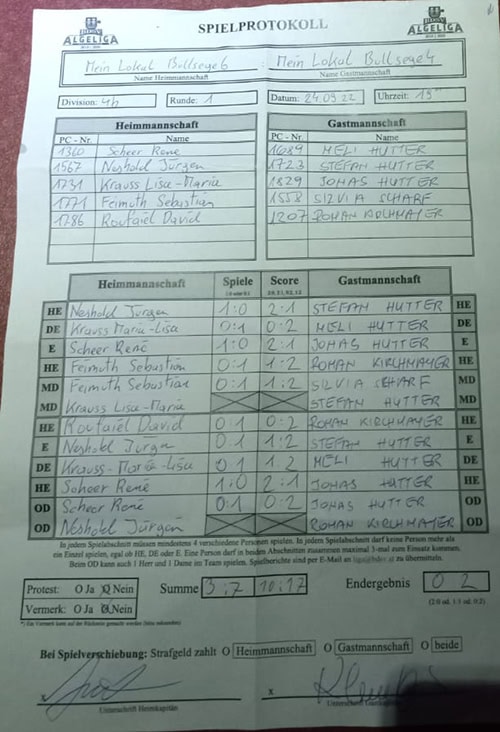 SPIELPROTOKOLL
ALGELIGA ALGELIGA
Mein Lokal Bullseye 6 : Mein Lokal Bullseye 4
Name Heimmannschaft Name Gastmannschaft
Division: 4b Runde: 1 Datum: 24.09.22 Uhrzeit: 19
Heimmannschaft Gastmannschaft
PC - Nr. Name PC - Nr. Name
1360 Scheer René 1689 MELI HUTTER
1567 Neshold Jürgen 1723 STEFAN HUTTER
1731 Krauss Lisa-Maria 1829 JONAS HUTTER
1771 Feimuth Sebastian 1558 SILVIA SCHARF
1786 Roufaiel David 1207 ROMAN KIRCHMAYER
Heimmannschaft Spiele Score Gastmannschaft
HE Neshold Jürgen 1:0 2:1 STEFAN HUTTER HE
DE Krauss Maria-Lisa 0:1 0:2 MELI HUTTER DE
E Scheer René 1:0 2:1 JONAS HUTTER E
HE Feimuth Sebastian 0:1 1:2 ROMAN KIRCHMAYER HE
MD Feimuth Sebastian 0:1 1:2 SILVIA SCHARF MD
MD Krauss Lisa-Maria STEFAN HUTTER MD
HE Roufaiel David 0:1 0:2 ROMAN KIRCHMAYER HE
E Neshold Jürgen 0:1 1:2 STEFAN HUTTER E
DE Krauss-Maria-Lisa 0 1 1 2 MELI HUTTER DE
HE Scheer René 1:0 2:1 JONAS HUTTER HE
OD Scheer René 0:1 0:2 JONAS HUTTER OD
OD Neshold Jürgen ROMAN KIRCHMAYER OD
In jedem Spielabschnitt müssen mindestens 4 verschiedene Personen spielen. In jedem Spielabschnitt darf keine Person mehr als
ein Einzel spielen, egal ob HE, DE oder E. Eine Person darf in beiden Abschnitten zusammen maximal 3-mal zum Einsatz kommen.
Beim OD kann auch 1 Herr und 1 Dame im Team spielen. Spielberichte sind per E-Mail an zu übermitteln.
Protest: O Ja O Nein Summe 3:7 10:17 Endergebnis 0 2
Vermerk: O Ja O Nein (2:0 od. 1:1 od. 0:2)
Bei Spielverschiebung: Strafgeld zahlt O Heimmannschaft O Gastmannschaft O beide
x x
Unterschrift Heimkapitän Unterschrift Gastkapitän